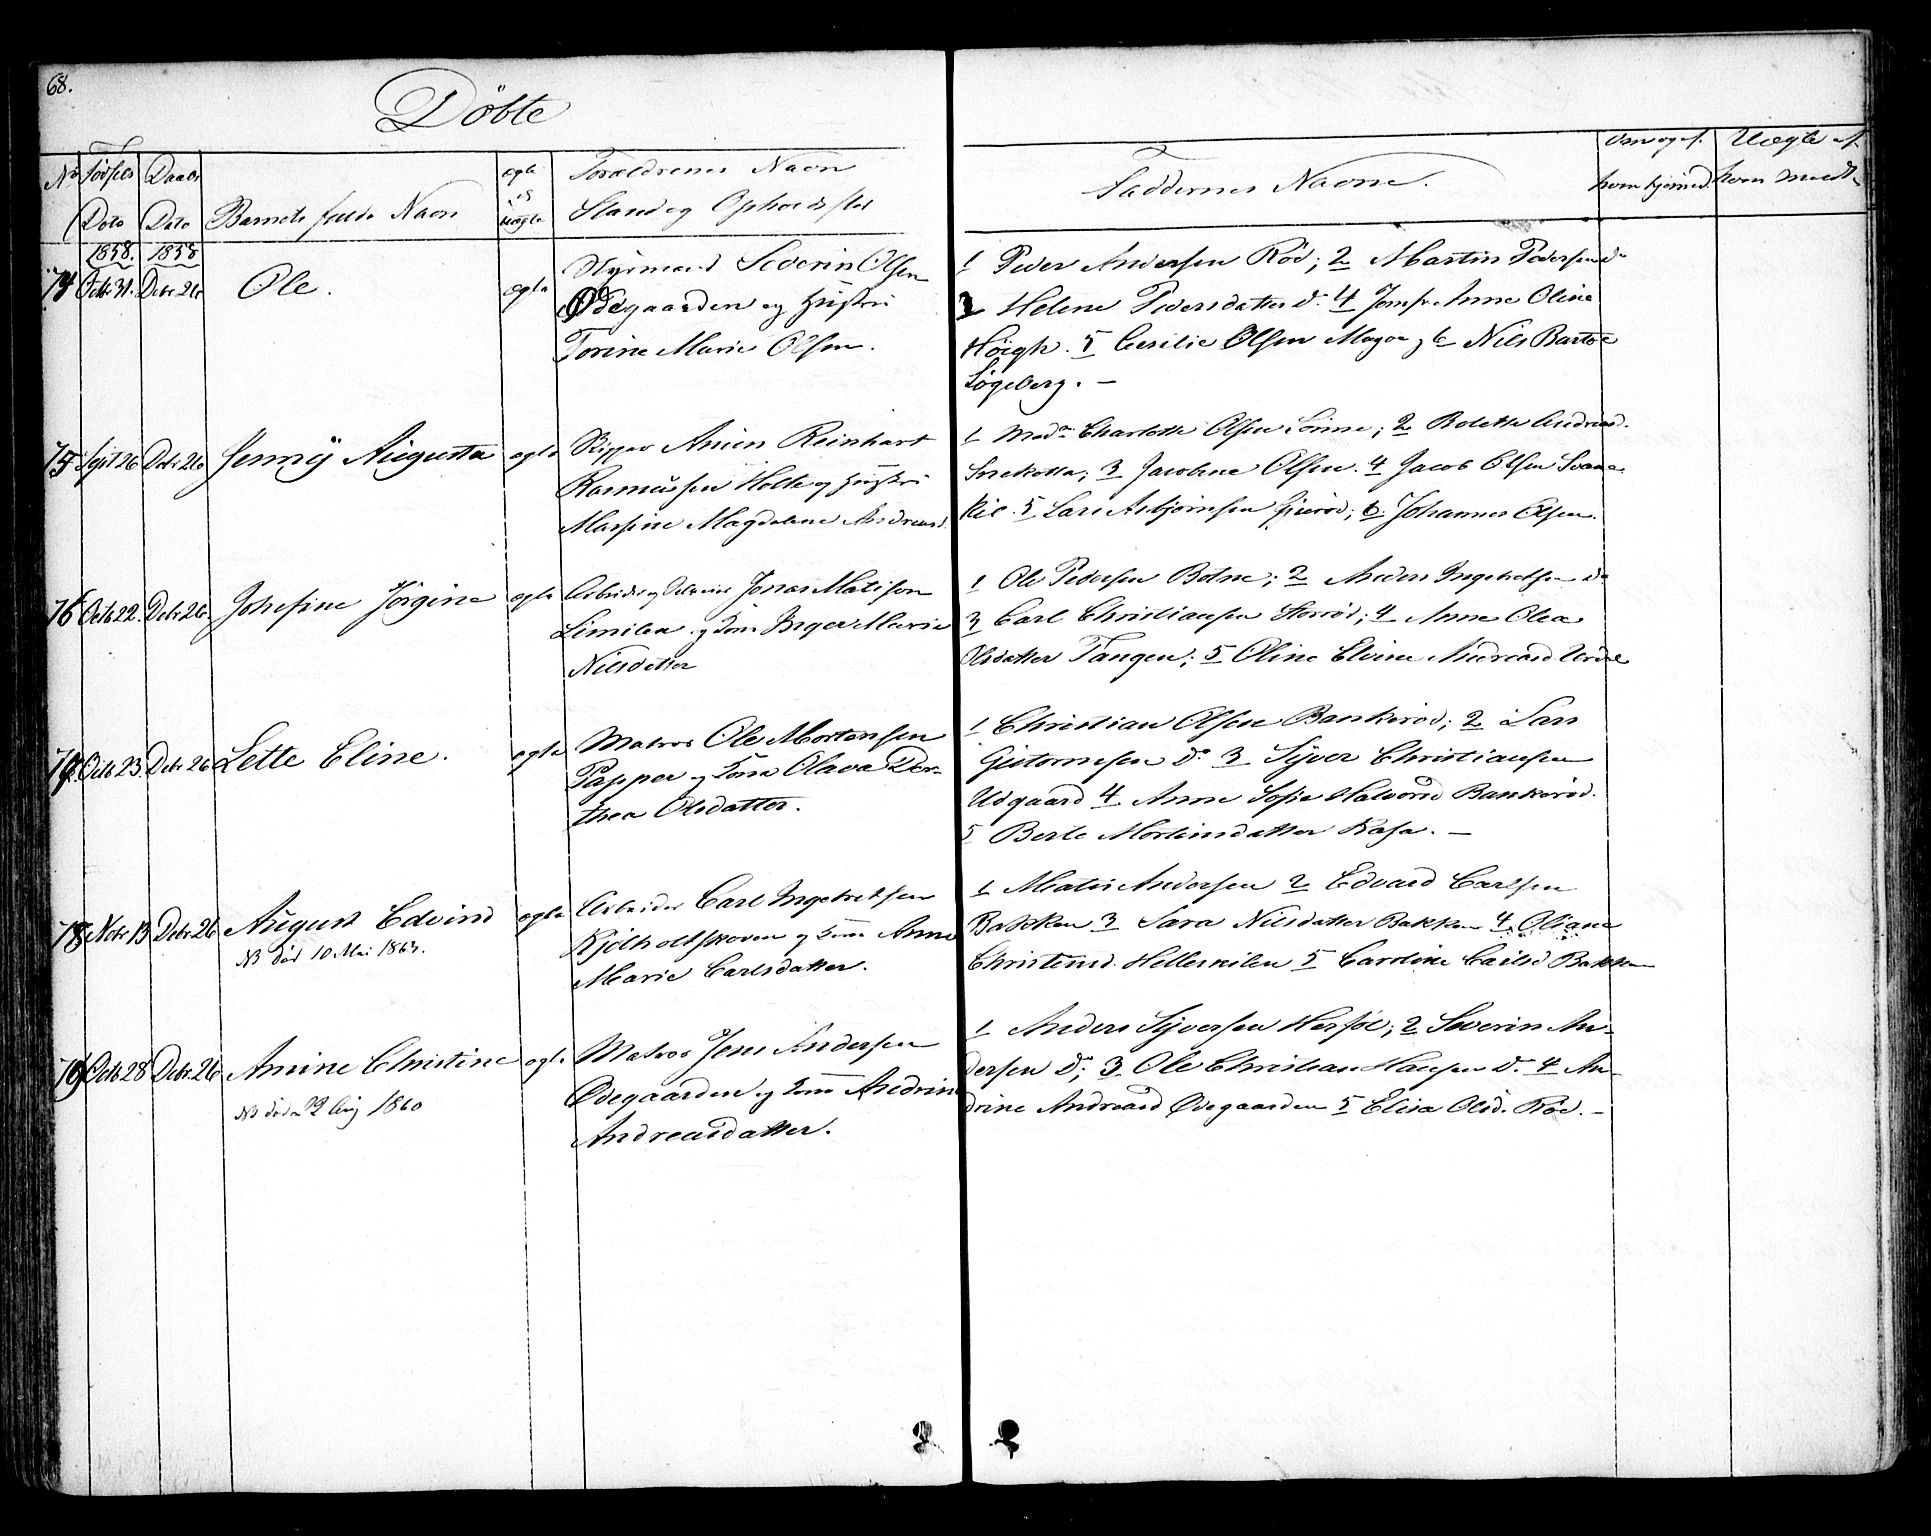 68.
Döbte
No Födsels Daabs ægte Forældrenes Navn
Dato Dato Barnets fulde Navn uægte Stand og Opholdssted
Faddernes Navne.
hvem hjemmed.
Uægte af
hvem meldt
1858. 1858
74 Octb 31. Decbr 26 Ole. ægte Styrmand Severin Olsen
Ödegaarden og Hustru
Torine Marie Olsen.
1 Peder Andersen Röd; 2 Martin Pedersen do
3 Helene Pedersdatter do. 4 Jomfr. Anne Oline
Höegh. 5 Cecilie Olsen Magøe 6 Nils Bartoe
Lögeberg. —
75 Sept 26 Decbr 26 Jenny Augusta ægte Skipper Anien Reinhart
Rasmussen Holte og Hustru
Massine Magdalene Andreasd.
1 Mad. Charlotte Olsen Linne; 2 Bolette Andreasd.
Snekotta; 3 Jacobine Olsen. 4 Jacob Olsen Svane
Kil. 5 Lars Asbjörnsen Gierød; 6. Johannes Olsen.
76 Octb 22. Decbr 26. Josefine Jörgine ægte Arbeider Jonas Matisson
Limilen og Kone Inger Marie
Nilsdatter
1 Ole Pedersen Botne; 2 Anders Ingebretsen do
3 Carl Christiansen Storröd; 4 Anne Olea
Olsdatter Tangen; 5 Oline Elvine Andreasd
77. Octb 23. Decbr 26 Lette Eline. ægte Matros Ole Mortensen
Papper og Kone Olava Dor-
thea Olsdatter.
1 Christian Olsen Bankeröd; 2 Lars
Guttormsen do 3 Syver Christiansen
Udgaard 4 Anne Sofie Halvorsd Bankeröd.
5 Berte Martinsdatter Kasa. —
78 Novbr 13 Decbr 26 August Edvind ægte Arbeider Carl Ingebretsen
NB död 10 Mai 1863.
Kjölholtskoven og Kone Anne
Marie Carlsdatter.
1 Matis Andersen 2 Edvard Carlsen
Bakken 3 Sara Nilsdatter Bakken 4. Oliane
Christensd. Hellesvilen 5 Caroline Carlsd Bakken
79 Octb 28 Decbr. 26 Amine Christine ægte Matros Jens Andersen
NB död 22 Aug 1860
Ödegaarden og Kone Andrine
Andreasdatter.
1 Anders Syversen Hersöe; 2 Severin An-
dersen do; 3 Ole Christian Hansen do. 4 An-
drine Andreasd Ödegaarden 5 Elisa Olsd. Röe. —